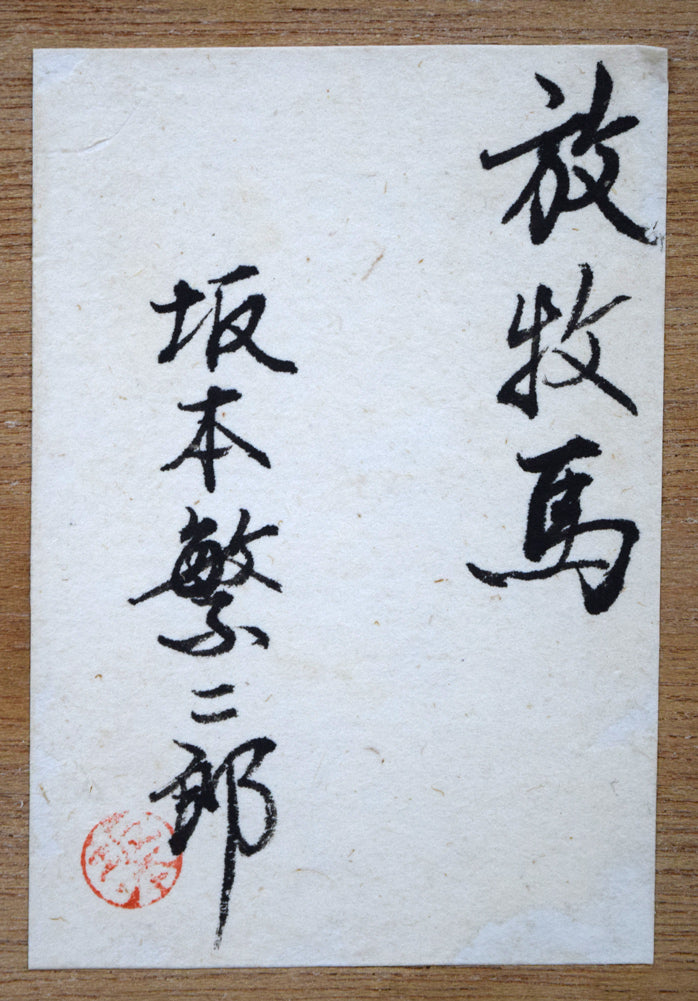 放牧馬
坂本繁二郎